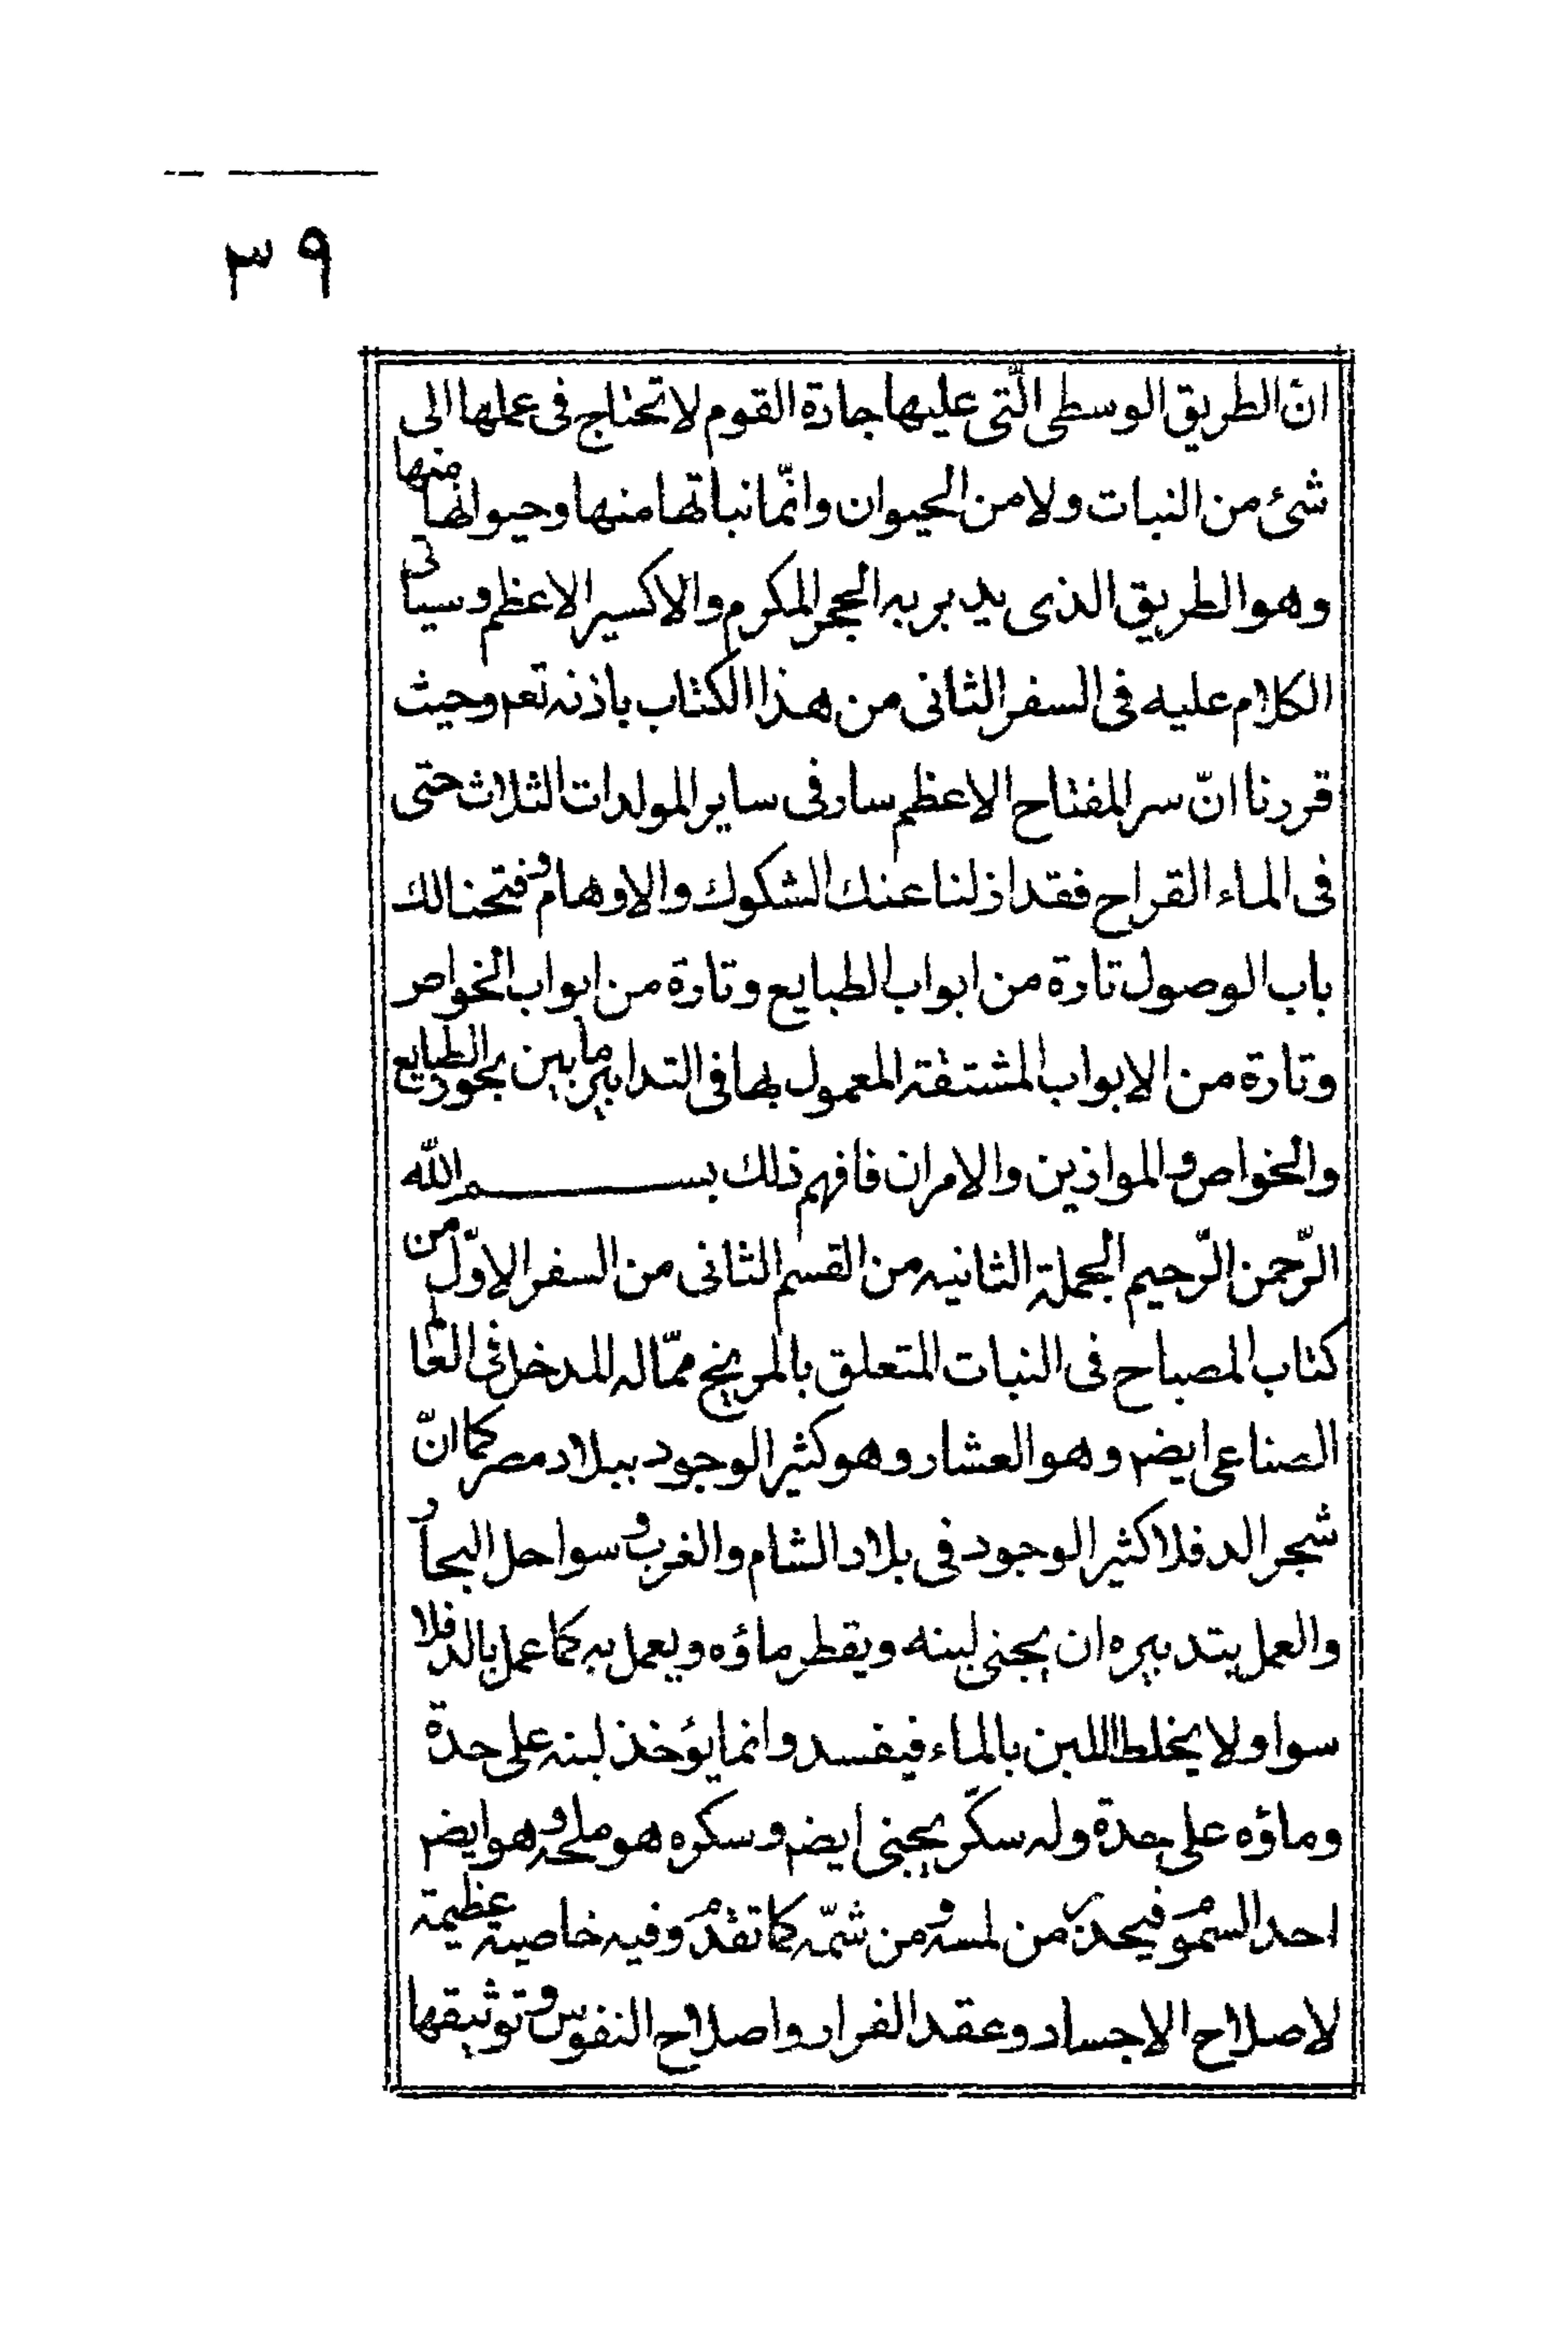 ٣٩
انّ الطريق الوسطى الّتى عليها جادة القوم لا تحتاج فى عملها الى
شئ من النبات ولا من الحيوان وانّما نباتها منها وحيوانها منها
وهو الطريق الذى يدبر به الحجر المكرم والاكسير الاعظم وسياتى
الكلام عليه فى السفر الثانى من هذا الكتاب باذنه تعم وحيث
قررنا انّ سر المفتاح الاعظم سار فى ساير المولدات الثلاث حتى
فى الماء القراح فقد ازلنا عنك الشكوك والاوهام وفتحنا لك
باب الوصول تارة من ابواب الطبايع وتارة من ابواب الخواص
وتارة من الابواب المشتقة المعمول بها فى التدابير ما بين بحور الطبايع
والخواص والموازين والامران فافهم ذلك بسم الله
الرّحمن الرّحيم الجملة الثانيه من القسم الثانى من السفر الاوّل من
كتاب المصباح فى النبات المتعلق بالمريخ ممّا له المدخل فى العالم
الصناعى ايضم وهو العشار وهو كثير الوجود ببلاد مصر كما انّ
شجر الدفلا كثير الوجود فى بلاد الشام والغرب وسواحل البحار
والعمل بتدبيره ان يجنى لبنه ويقطر ماؤه ويعمل به كما عمل بالدفلا
سوا ولا يخلط اللبن بالماء فيفسد وانما يؤخذ لبنه على حدة
وماؤه على حدة وله سكّر يجنى ايضم وسكره هو ملحه وهو ايضم
احد السموم فيحذر من لمسه ومن شمّه كما تقدم وفيه خاصية عظيمة
لاصلاح الاجساد وعقد الفرار واصلاح النفوس وتوثيقها